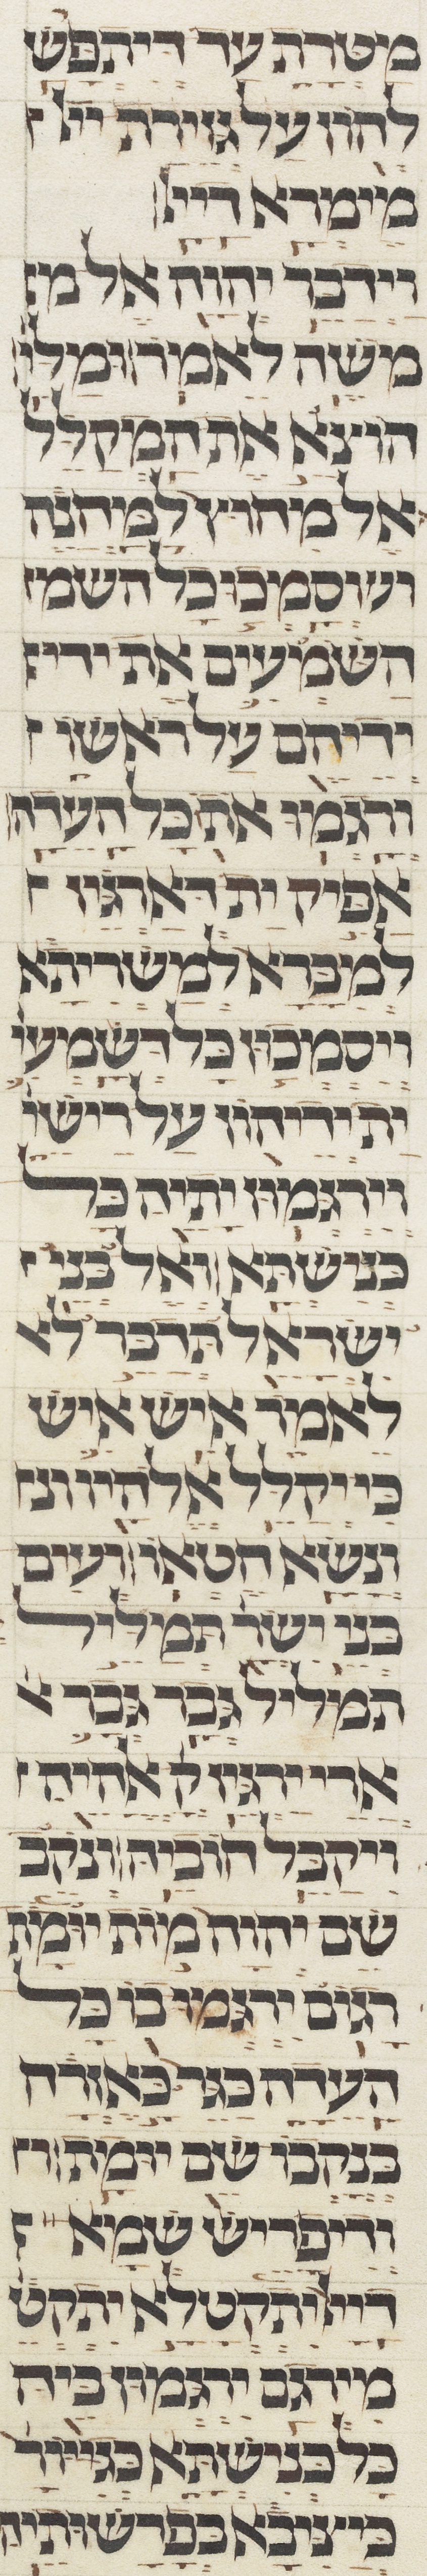 מטרת עד דיתפש
להון על גזירת ייי
מימרא דייי׃
וידבר יהוה אל מ
משה לאמר׃ ומלי
הוצא את המקלל
אל מחוץ למחנה
וסמכו כל השמ
השמעים את ידי
ידיהם על ראשו
ורגמו אתו כל העדה׃
אפיק ית דארגיז
למברא למשריתא
ויסמכון כל דשמעו
ית ידיהון על רישי
וירגמון יתיה כל
כנישתא׃ ואל בני
ישראל תדבר ל
לאמר איש איש
כי יקלל אלהיו ונ
ונשא חטאו׃ ועים
בני ישר׳ תמליל
תמליל גבר גבר
ארי ירגיז ק׳ אלהיה
ויקבל חוביה׃ ונקב
שם יהוה מות יומת
רגום ירגמו בו כל
העדה כגר כאזרח
בנקבו שם יומת׃ וד
ודיפריש שמא
דייי יתקטלא יתקט
מירגם ירגמון ביה
כל כנישתא כגיורא
כיציבא בפרשותיה